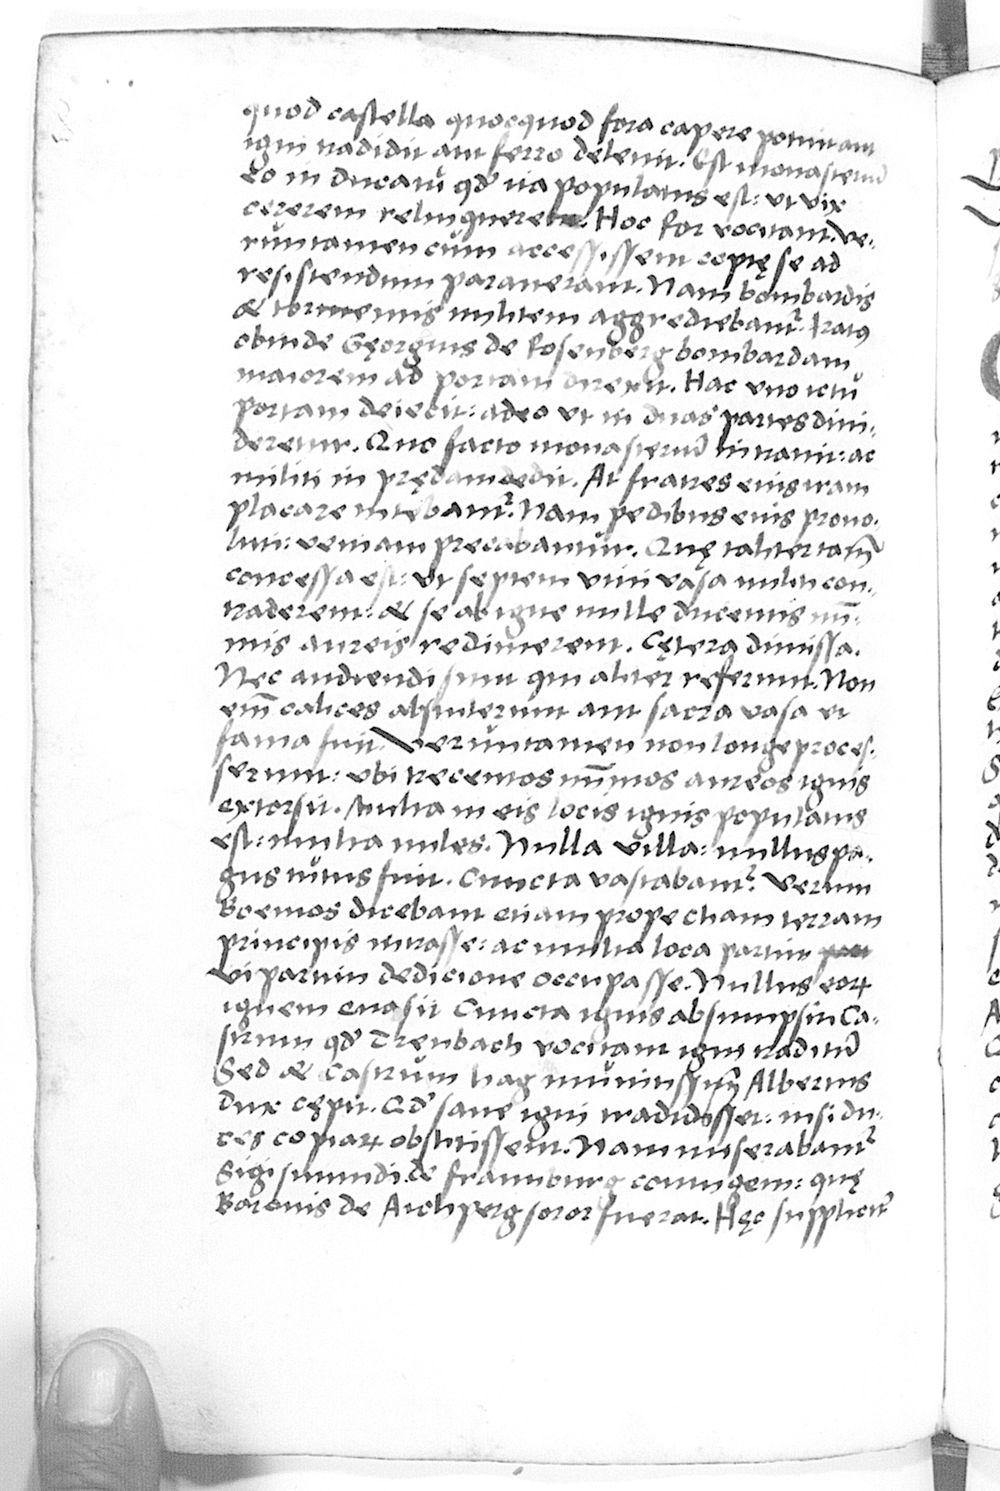 quod castella quoc quod fora capere potuit aut
igni tradidit aut ferro delevit. Est monasteriũ
eo in ducatu qđ ita populatus est: ut vix
cererem relinqueret. Hoc Ror vocitant. Ve-
runtamen cum accessissent copię se ad
resistendum paraverant. Nam bombardis
& tormentis militem aggrediebant̃. Iratus
obinde Gęorgius de Rosenberg bombardam
maiorem ad portam direxit. Hac uno ictu
portam deiecit: adeo ut in duas partes divi-
deretur. Quo facto monasteriũ intravit: ac
militi in prędam dedit. At fratres eius iram
placare nitebant̃. Nam pedibus eius provo-
luti: veniam precabantur. Quę taliter tam̃
concessa est: ut septem vini vasa militi con-
traderent: & se ab igne mille ducentis nũ-
mis aureis redimerent. Cętera dimissa.
Nec audiendi sunt qui aliter referunt. Non
em̃ calices absunterunt aut sacra vasa ut
fama fuit. Veruntamen non longe proces-
serunt: ubi trecentos nũmos aureos ignis
extorsit. Multa in eis locis ignis populatus
est: multa miles. Nulla villa: nullus pa-
gus tutus fuit. Cuncta vastabant̃. Verum
Boemos dicebant etiam prope cham terram
principis intrasse: ac multa loca partim
vi partim dedicione occupasse. Nullus eoꝝ
ignem evasit Cuncta ignis absumpsit Ca-
strum qđ Trenbach vocitant igni traditũ
Sed & castrum hag munitissimũ Albertus
dux cępit. Qđ sane igni tradidisset: nisi du-
ces copiaꝝ obstitissent. Nam miserabant̃
Sigismundi de fraunburg coniugem: quę
Baronis de Aichperg soror fuerat. Hęc suppliciť